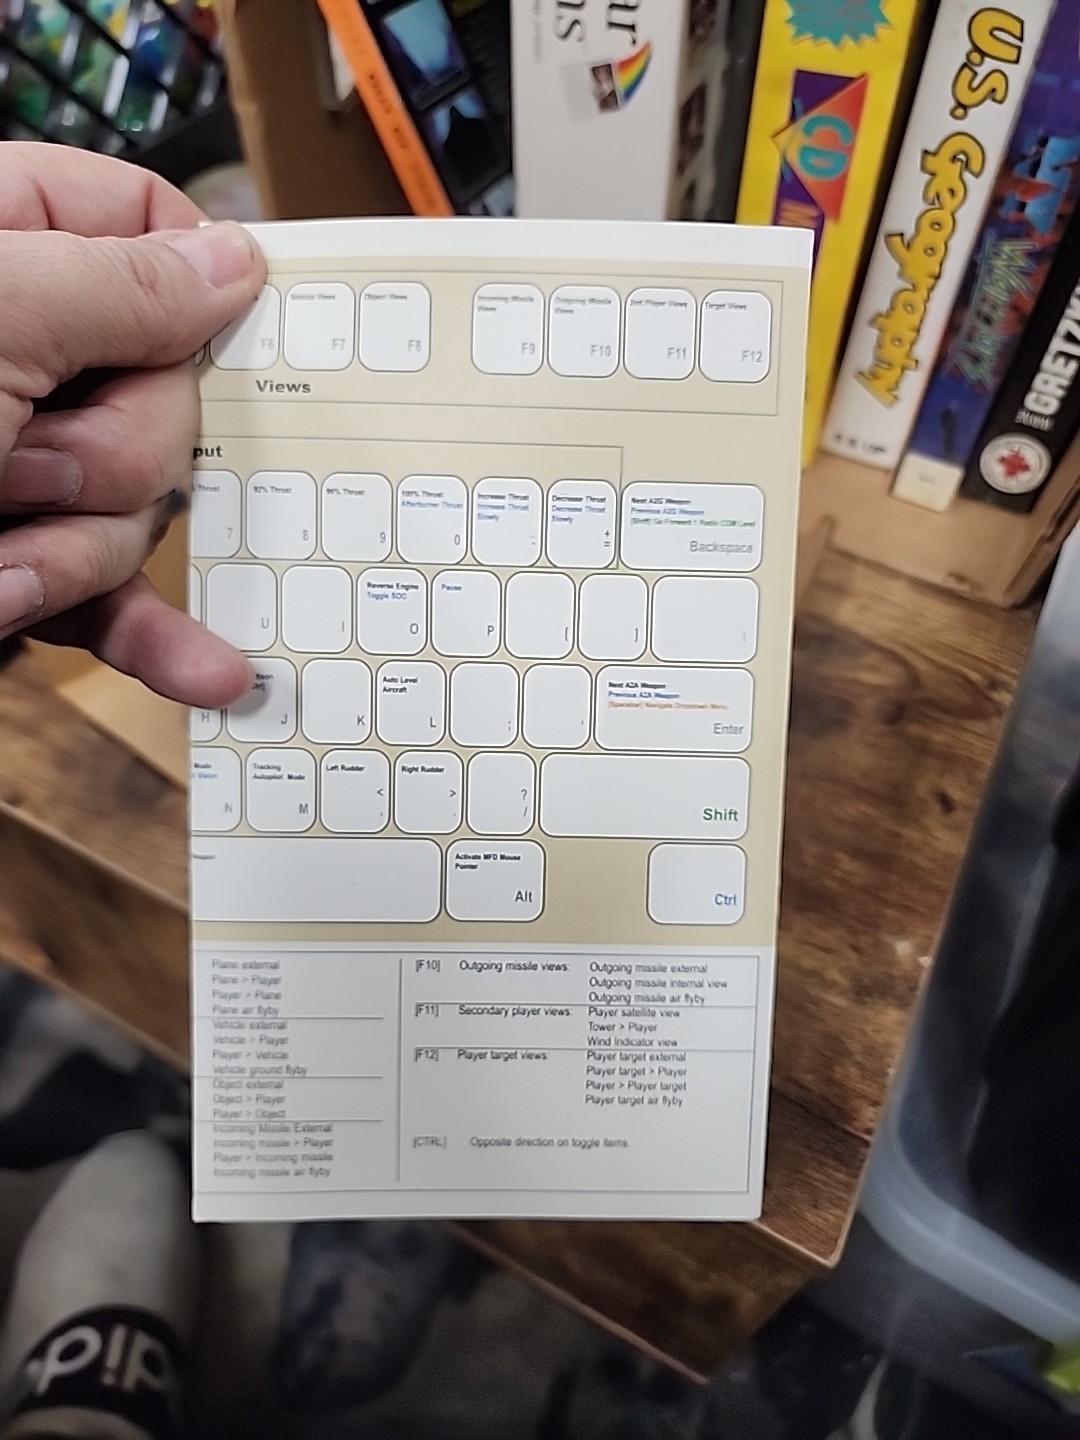 CD
U.S. Geography
GRETZKY
Vehicle Views
F6
F7
Object Views
F8
Incoming Missile
Views
F9
Outgoing Missile
Views
F10
2nd Player Views
F11
Target Views
F12
Views
put
Thrust
7
92% Thrust
8
96% Thrust
9
100% Thrust
Afterburner Thrust
0
Increase Thrust
Increase Thrust
Slowly
-
Decrease Thrust
Decrease Thrust
Slowly
+
=
Next A2G Weapon
Previous A2G Weapon
[Shift] Go Forward 1 Radio COM Level
Backspace
U
I
Reverse Engine
Toggle SOO
O
Pause
P
[
]
\
H
J
K
Auto Level
Aircraft
L
;
'
Next A2A Weapon
Previous A2A Weapon
[Spacebar] Navigate Dropdown Menu
Enter
Mode
Vision
N
Tracking
Autopilot Mode
M
Left Rudder
<
,
Right Rudder
>
.
?
/
Shift
Weapon
Activate MFD Mouse
Pointer
Alt
Ctrl
Plane external
Plane > Player
Player > Plane
Plane air flyby
Vehicle external
Vehicle > Player
Player > Vehicle
Vehicle ground flyby
Object external
Object > Player
Player > Object
Incoming Missile External
Incoming missile > Player
Player > Incoming missile
Incoming missile air flyby
[F10] Outgoing missile views: Outgoing missile external
Outgoing missile internal view
Outgoing missile air flyby
[F11] Secondary player views: Player satellite view
Tower > Player
Wind Indicator view
[F12] Player target views: Player target external
Player target > Player
Player > Player target
Player target air flyby
[CTRL] Opposite direction on toggle items.